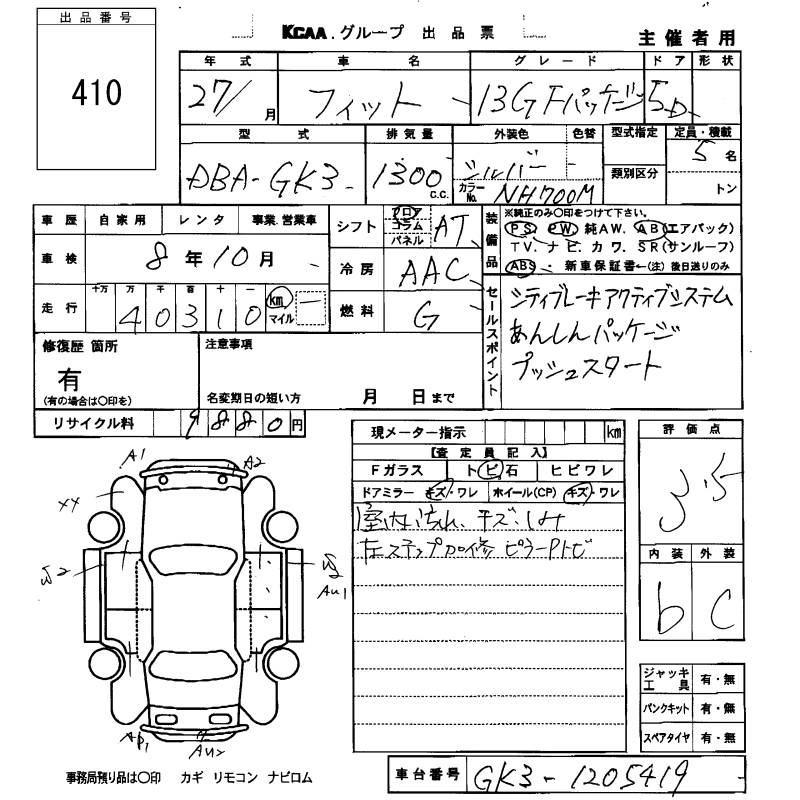 出品番号
410
KCAA.グループ 出品票
主催者用
年式 車名 グレード ドア 形状
27/ 月 フィット 13G Fパッケージ 5D
型式 排気量 外装色 色替 型式指定 定員・積載
DBA-GK3 1300 c.c. シルバー 類別区分 5名
カラーNo. NH700M トン
車歴 自家用 レンタ 事業.営業車
シフト フロア コラム パネル AT
装備品 ※純正のみ〇印をつけて下さい。
PS. PW. 純AW. AB(エアバック)
TV. ナビ. カワ. SR(サンルーフ)
ABS 新車保証書←(注) 後日送りのみ
車検 8年10月
冷房 AAC
走行 十万 万 千 百 十 一
40310 km マイル
燃料 G
セールスポイント
シティブレーキアクティブシステム
あんしんパッケージ
プッシュスタート
修復歴 箇所
有
(有の場合は〇印を)
注意事項
名変期日の短い方 月 日まで
リサイクル料 9880円
現メーター指示 km
【査定員記入】
Fガラス トビ石 ヒビワレ
ドアミラー キズ・ワレ ホイール(CP) キズ・ワレ
室内汚れ、キズ、しみ
左ステップ加修 ピラーPトビ
評価点
3.5
内装 外装
b C
A1 A2
XX
W2 W2
AU1
AP1 AU2
ジャッキ工具 有・無
パンクキット 有・無
スペアタイヤ 有・無
事務局預り品は〇印 カギ リモコン ナビロム
車台番号 GK3-1205419